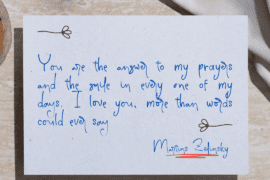 You are the answer to my prayers
and the smile in every one of my
days. I love you, more than words
could ever say